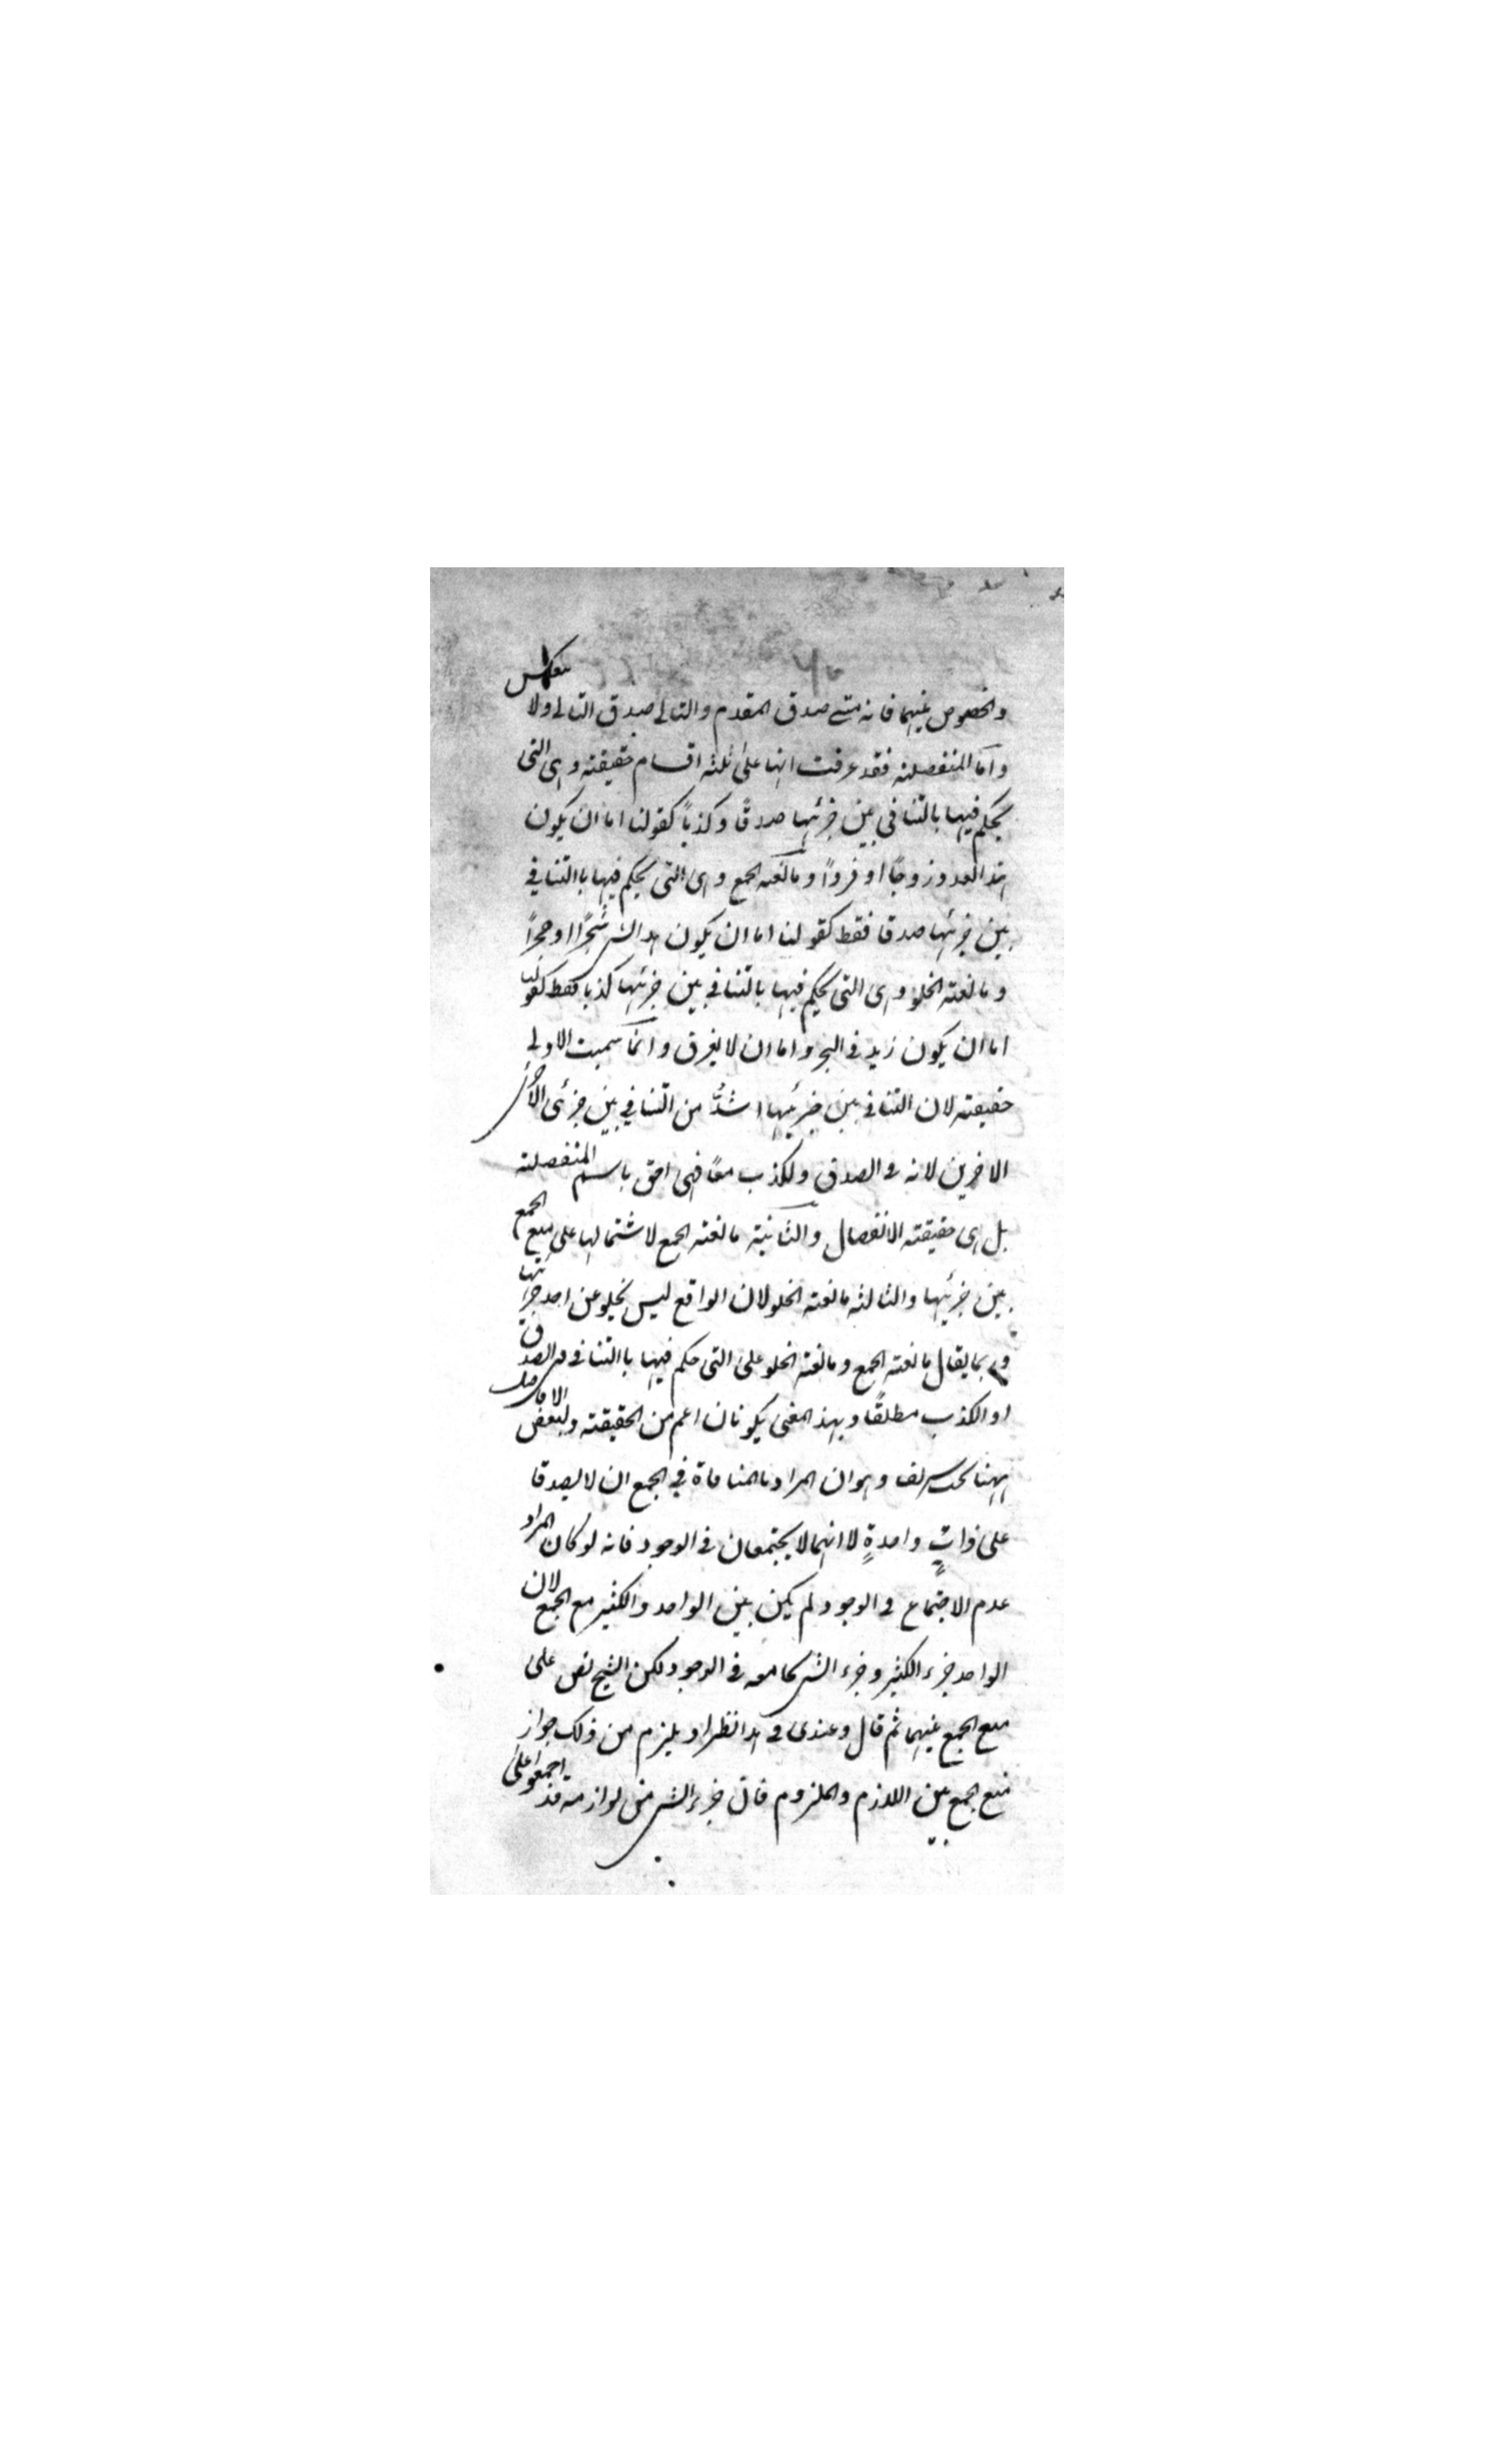 والخصوص بينهما فانه متى صدق المقدم والتالى صدق التالى ولا ينعكس
واما المنفصلة فقد عرفت انها على ثلثة اقسام حقيقته وهى التى
يحكم فيها بالتنافى بين جزئيها صدقًا وكذبًا كقولنا اما ان يكون
هذا العدد زوجًا او فردًا ومانعة الجمع وهى التى يحكم فيها باالتنافى
بين جزئيها صدقا فقط كقولنا اما ان يكون هذا الشئ شجرًا اوحجرًا
ومانعة الخلو وهى التى يحكم فيها بالتنافى بين جزئيها كذبا فقط كقولنا
اما ان يكون زيد فى البحر واما ان لا يغرق وانما سميت الاولى
حقيقته لان التنافى بين جزئيها اشدُّ من التنافى بين جزئى
الاخرين لانه فى الصدق ولكذب معًا فهى احق باسم المنفصلة
بل هى حقيقته الانفصال والثانية مانعة الجمع لاشتمالها على منع الجمع
بين جزئيها والثالثه مانعة الخلو لان الواقع ليس يخلو عن احد جزئيها
وربما يقال مانعة الجمع ومانعة الخلو على التى حكم فيها باالتنافى فى الصدق
او الكذب مطلقًا وبهذ المعنى يكونان اعم من الحقيقته ولبعض الافاضل
ههنا بحث شريف وهوان المراد بالمنافاة فى الجمع ان لا يصدقا
على ذاتٍ واحدةٍ لا انهما لا يجتمعان فى الوجود فانه لو كان المراد
عدم الاجتماع فى الوجود لم يكن بين الواحد والكثير منع الجمع لان
الواحد جزء الكثير وجزء الشئ يجامعه فى الوجود لكن الشيخ نص على
منع الجمع بينهما ثم قال وعندى فى هذا نظر اذ يلزم من ذلك جواز
منع الجمع بين اللازم والملزوم فان جزء الشئ من لوازمه قد اجمعوا على